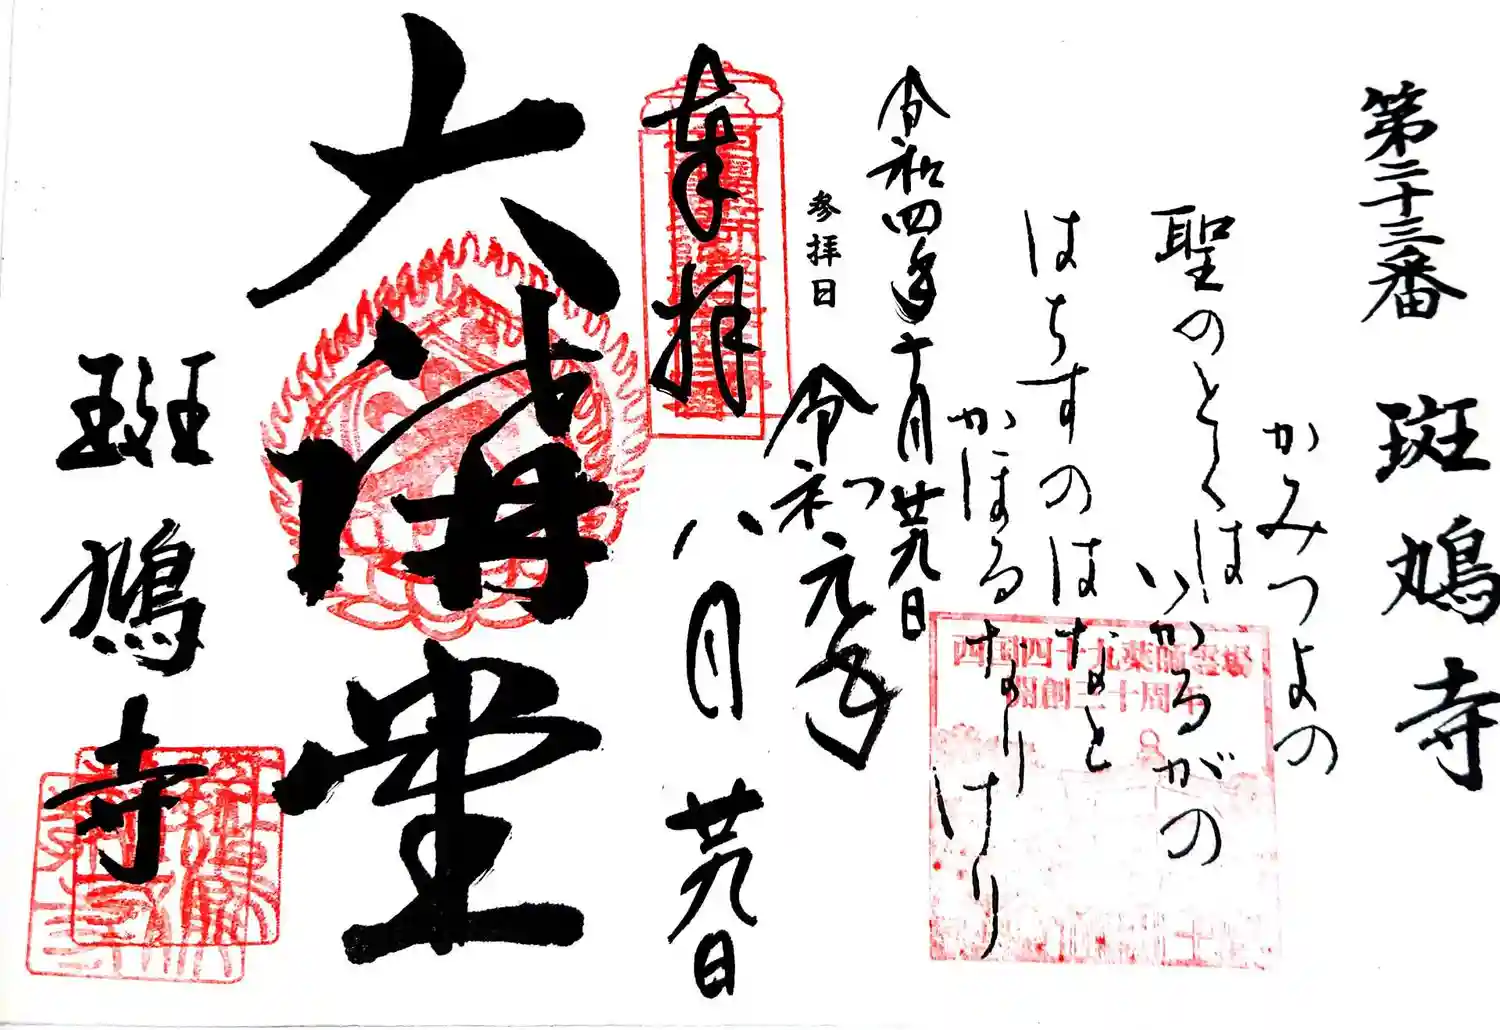 第二十三番 斑鳩寺
かみつよの
聖のとくは
いかるがの
はちすのはなと
かほるなりけり
西国四十九薬師霊場
開創三十周年
令和四年十月廿九日
参拝日
令和元年
八月廿九日
奉拝
大講堂
斑鳩寺